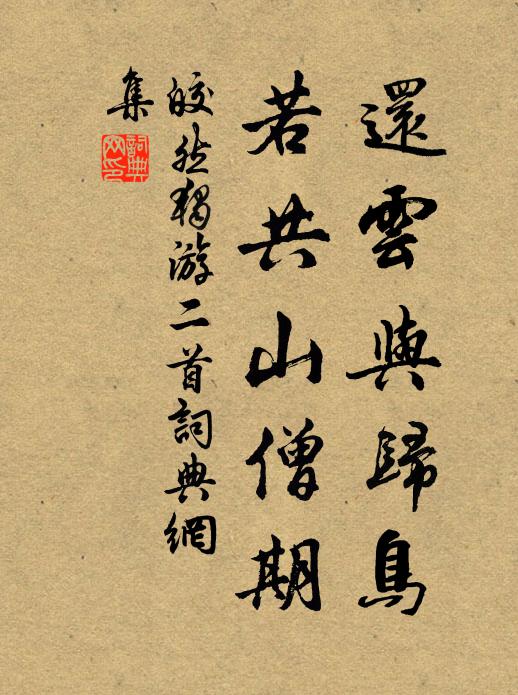 還雲與歸鳥
若共山僧期
皎然獨游二首詞典網
集
詞典
网印